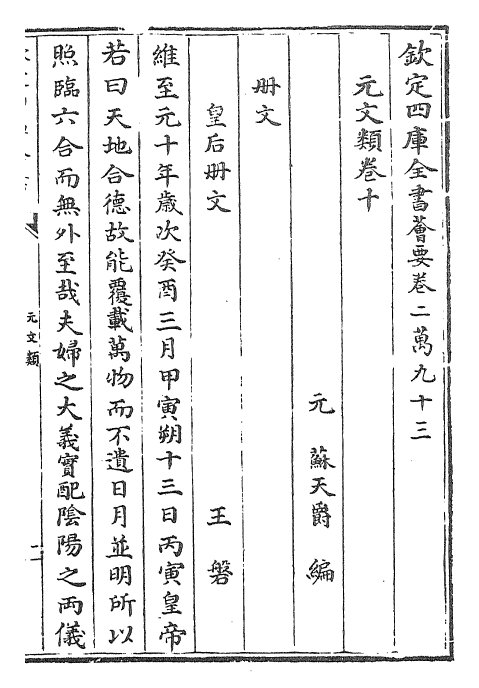 欽定四庫全書薈要卷二萬九十三
元文類卷十
元 蘇天爵 編
册文
皇后册文 王磐
維至元十年歲次癸酉三月甲寅朔十三日丙寅皇帝
若曰天地合德故能覆載萬物而不遺日月並明所以
照臨六合而無外至哉夫婦之大義實配陰陽之兩儀
元文類